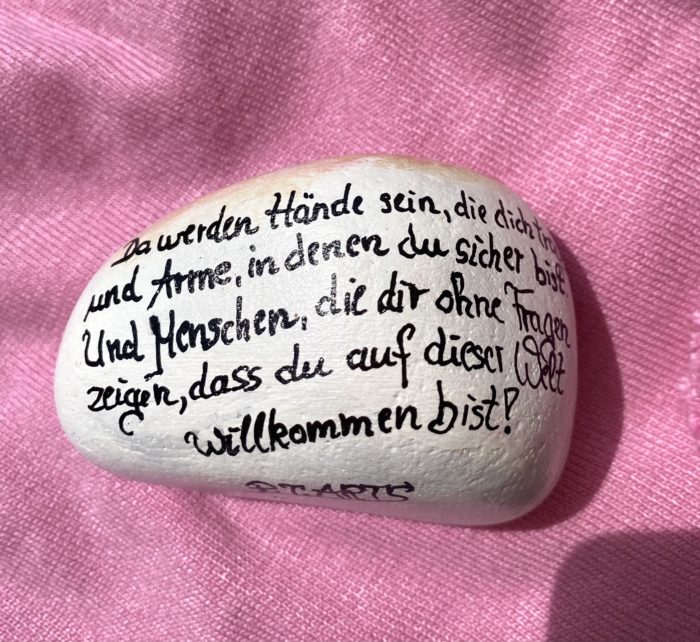 Da werden Hände sein, die dich
und Arme, in denen du sicher bist.
Und Menschen, die dir ohne Fragen
zeigen, dass du auf dieser Welt
willkommen bist!